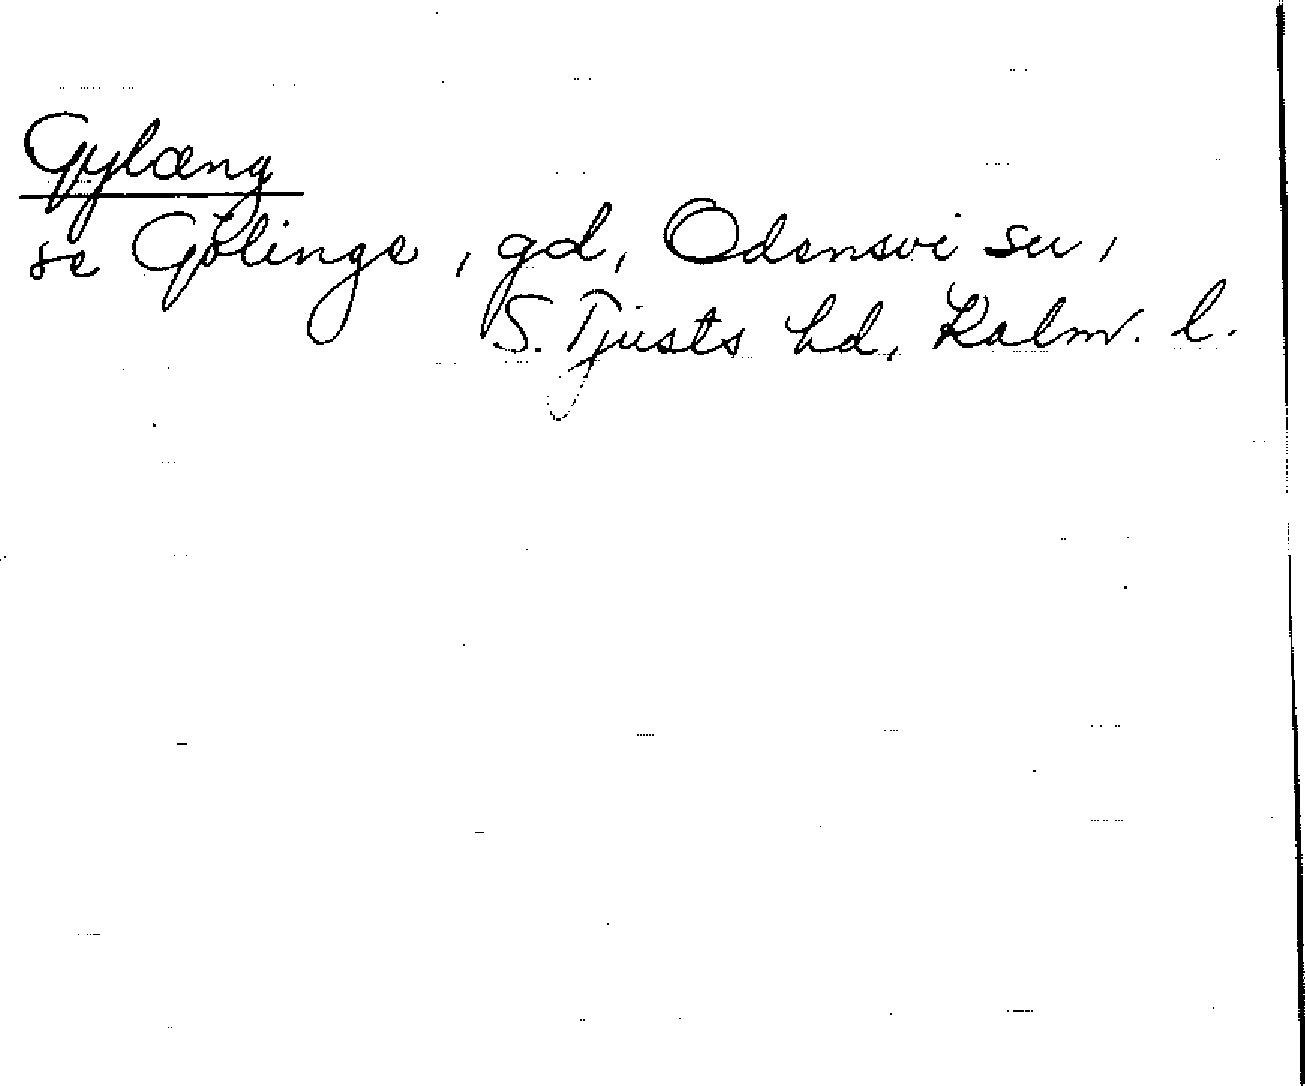 Gylæng
se Gölinge, gd, Odensvi sn,
S. Tjusts hd, Kalm. l.